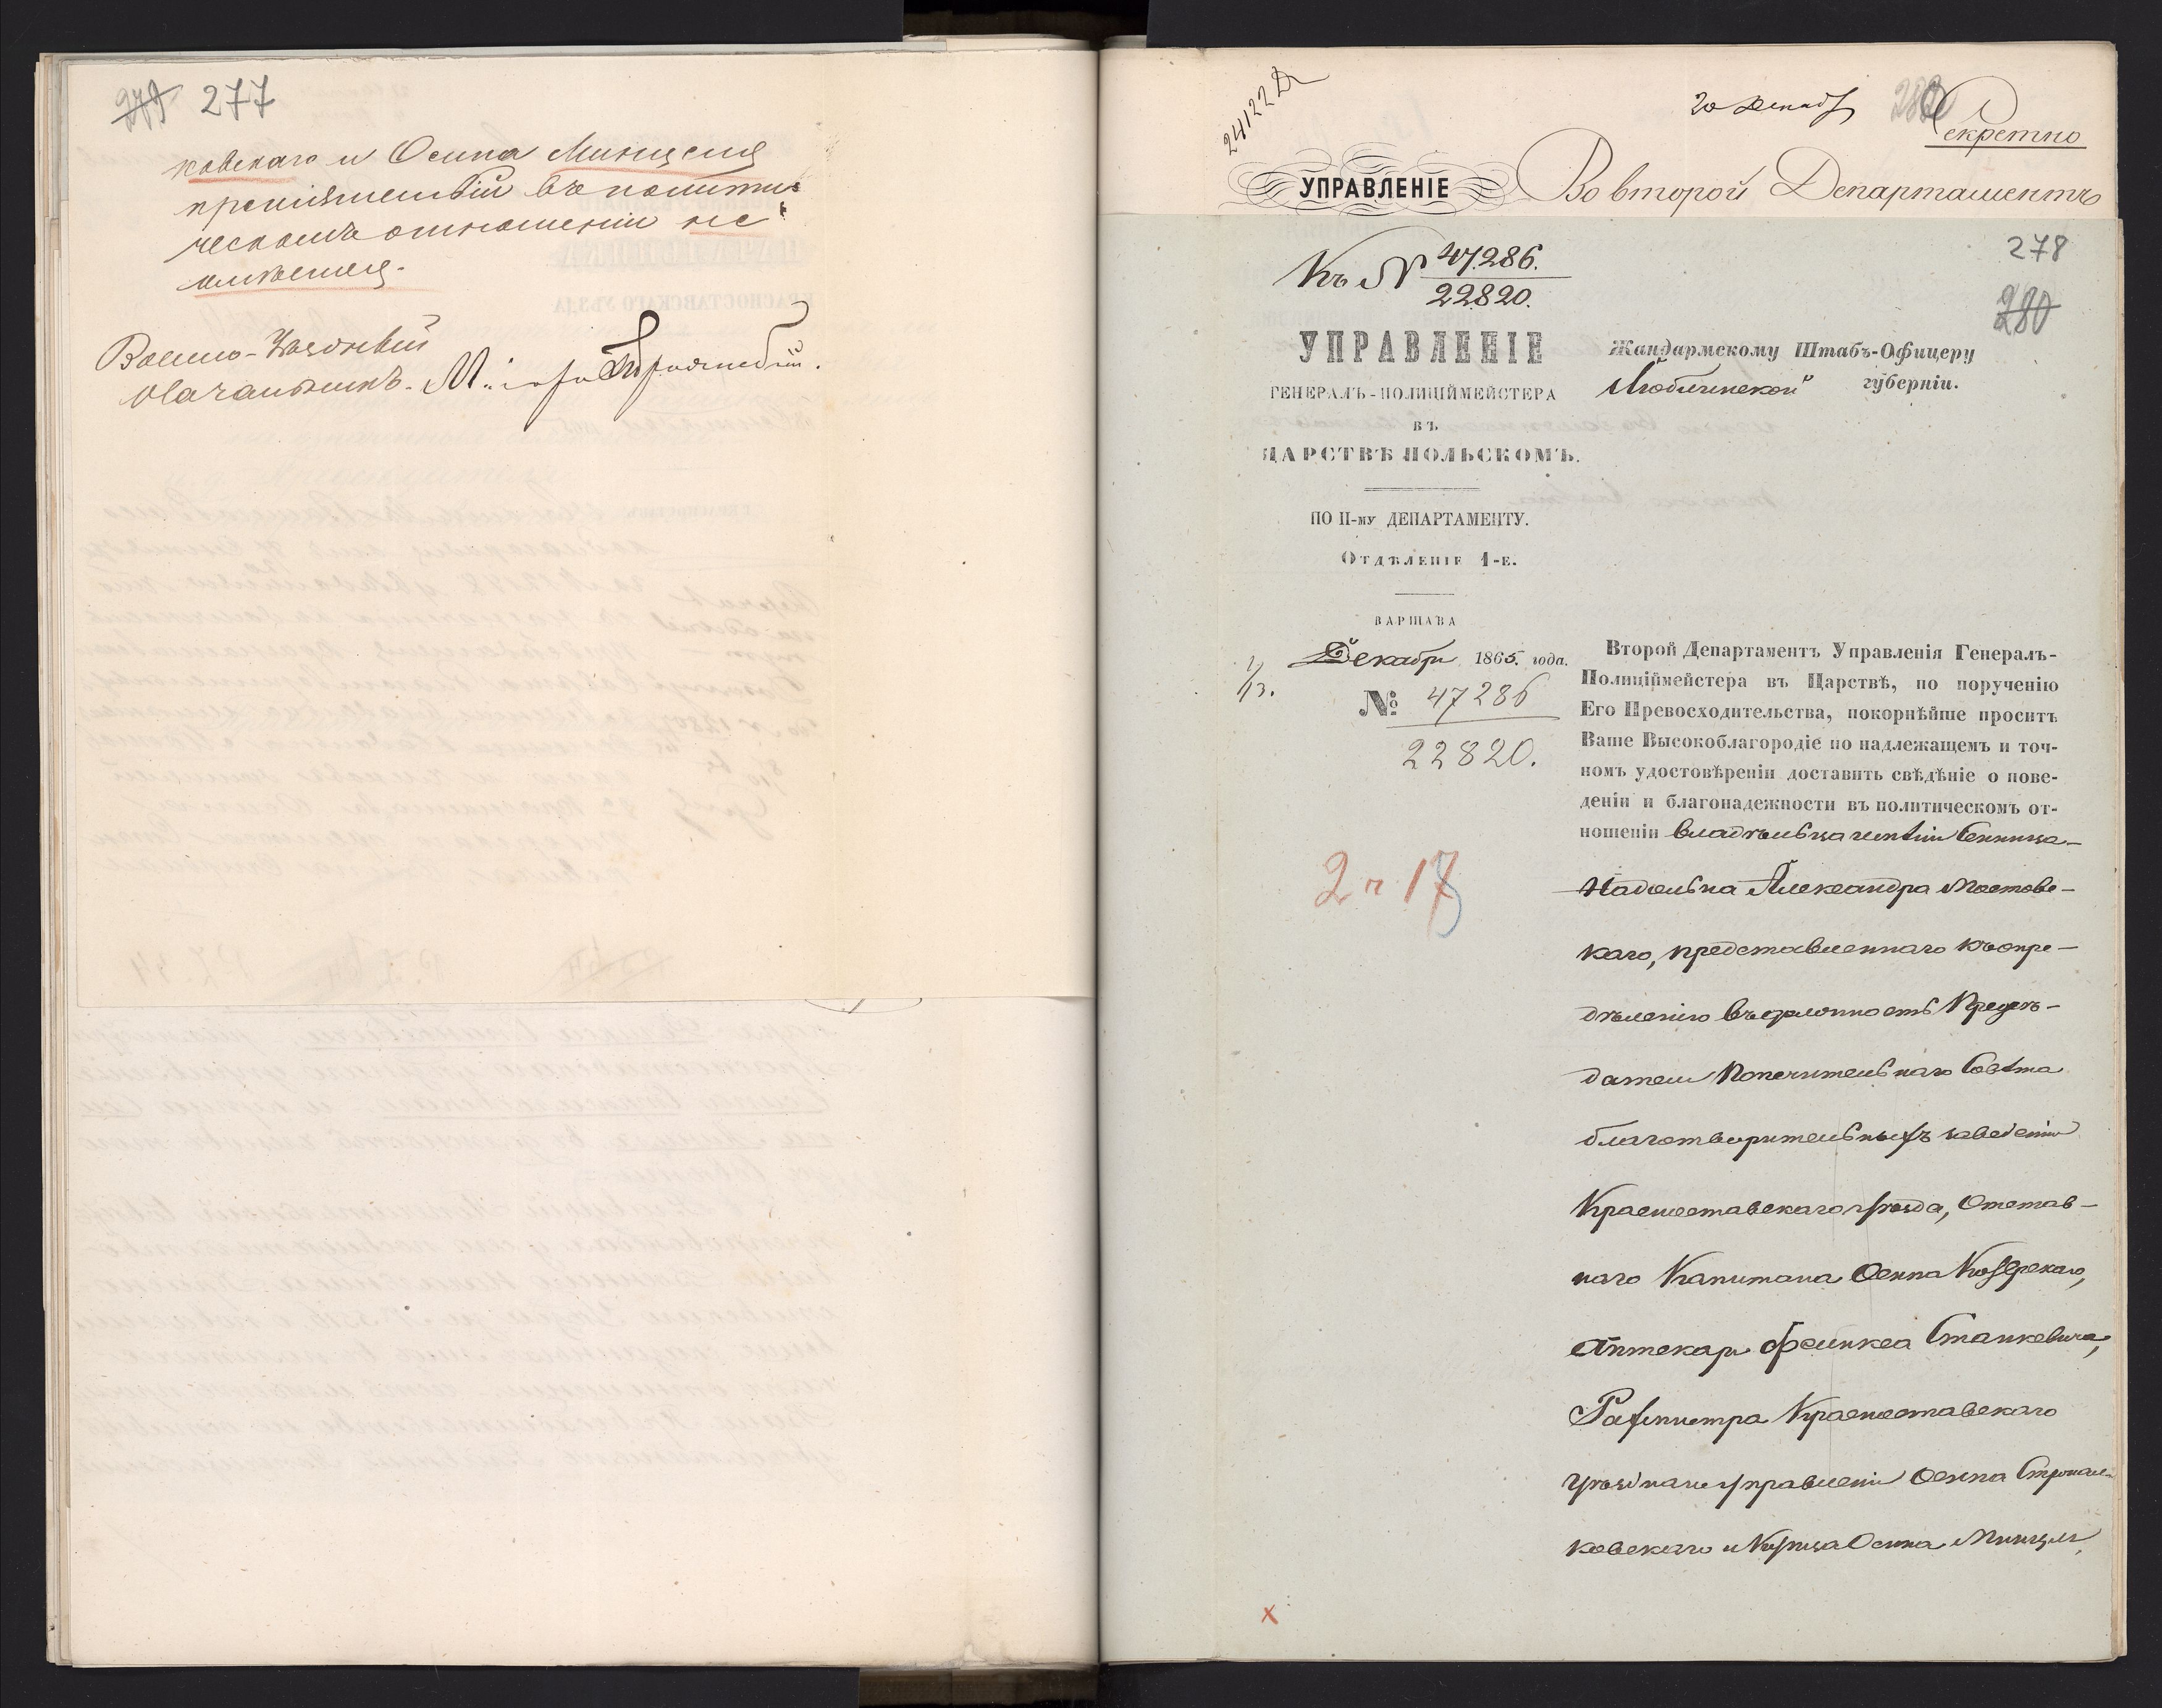 279 277
ковскаго и Осипа Минцеля
препятствій въ полити-
ческомъ отношеніи не
имѣется.
Военно-Уѣздный
Начальникъ. Маіоръ
24122
20 Декабр
282
Секретно
УПРАВЛЕНІЕ
Во второй Департаментъ
278
280
Къ № 47286.
22820.
УПРАВЛЕНІЕ
ГЕНЕРАЛЪ-ПОЛИЦІЙМЕЙСТЕРА
ВЪ
ЦАРСТВѢ ПОЛЬСКОМЪ.
ПО II-му ДЕПАРТАМЕНТУ.
Отдѣленіе 1-е.
ВАРШАВА
1/13. Декабря 1865. года.
№ 47286
22820.
2 ч 17
Жандармскому Штабъ-Офицеру
Люблинской губерніи.
Второй Департаментъ Управленія Генералъ-
Полиціймейстера въ Царствѣ, по порученію
Его Превосходительства, покорнѣйше проситъ
Ваше Высокоблагородіе по надлежащемъ и точ-
номъ удостовѣреніи доставить свѣдѣніе о пове-
деніи и благонадежности въ политическомъ от-
ношеніи владѣльца имѣнія Сенница-
Надольна Александра Мостовс-
каго, представленнаго къ опре-
дѣленію въ должность Предсѣ-
дателя Попечительнаго Совѣта
благотворительныхъ заведеній
Красноставскаго уѣзда, Отстав-
наго Капитана Осипа Козерскаго,
Аптекаря Феликса Станкевича,
Рахмистра Красноставскаго
Уѣзднаго управленія Осипа Строил-
ковскаго и Купца Осипа Минцля,
х